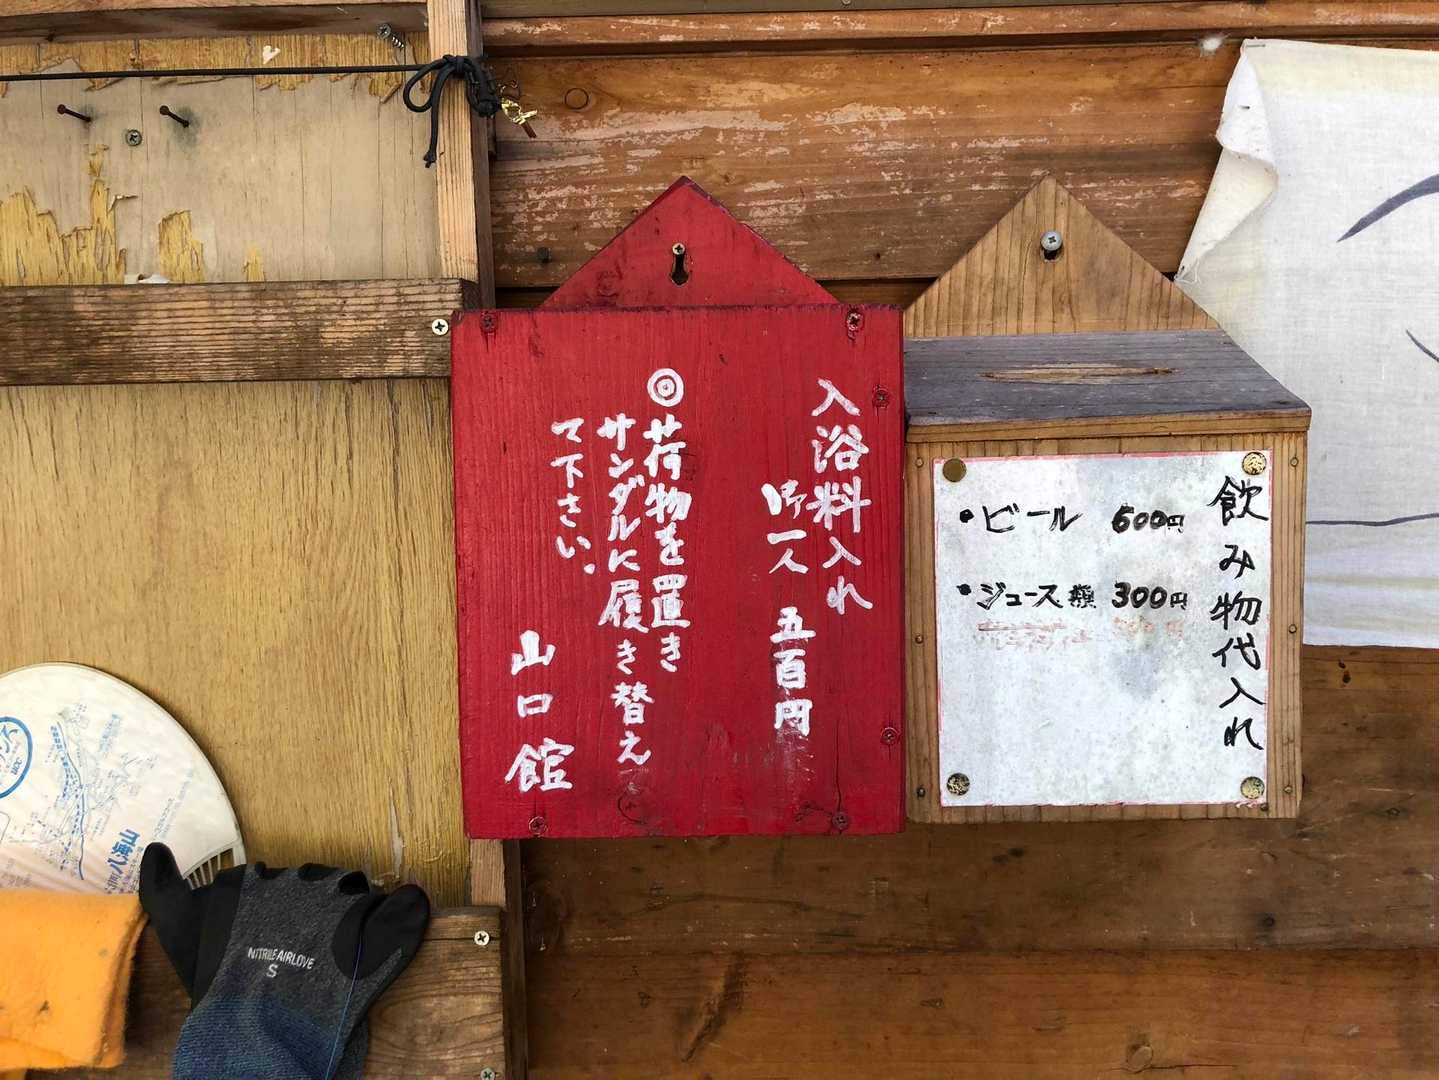 入浴料入れ
御一人 五百円
◎荷物を置き
サンダルに履き替え
て下さい。
山口館
飲み物代入れ
・ビール 500円
・ジュース類 300円
八海山
NITRILE AIRLOVE
S